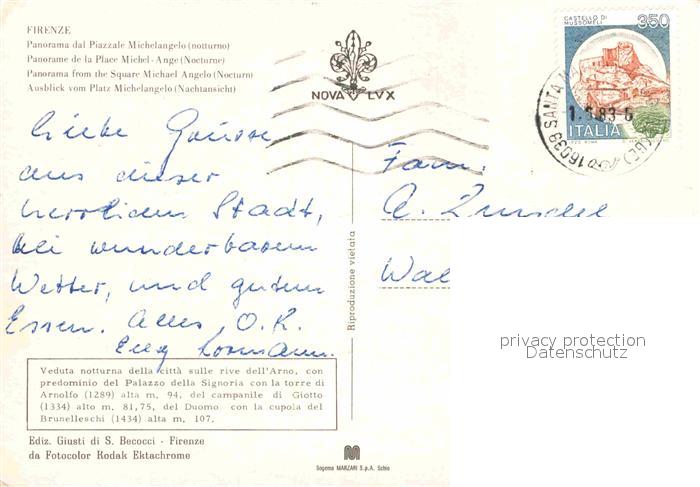 FIRENZE
Panorama dal Piazzale Michelangelo (notturno)
Panorame de la Place Michel-Ange (Nocturne)
Panorama from the Square Michael Angelo (Nocturn)
Ausblick vom Platz Michelangelo (Nachtansicht)
NOVA LVX
CASTELLO DI
MUSSOMELI
350
ITALIA
16039 SANTA
1.5.83-6
Liebe Grüsse
aus dieser
herrlichen Stadt,
bei wunderbarem
Wetter, und gutem
Essen. Alles O.K.
Fam.
A.
Wal
Riproduzione vietata
privacy protection
Datenschutz
Veduta notturna della città sulle rive dell'Arno, con
predominio del Palazzo della Signoria con la torre di
Arnolfo (1289) alta m. 94, del campanile di Giotto
(1334) alto m. 81,75, del Duomo con la cupola del
Brunelleschi (1434) alta m. 107.
Ediz. Giusti di S. Becocci - Firenze
da Fotocolor Kodak Ektachrome
Sogema MARZARI S.p.A. Schio